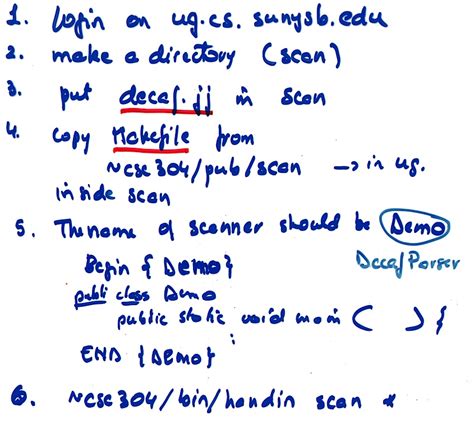 1. login on ug.cs.sunysb.edu
2. make a directory (scan)
3. put decaf.jj in scan
4. copy Makefile from
~cse304/pub/scan → in ug.
inside scan
5. The name of scanner should be Demo
DecafParser
Begin {Demo}
public class Demo
public static void main ( ) {
:
END {Demo}
6. ~cse304/bin/handin scan *